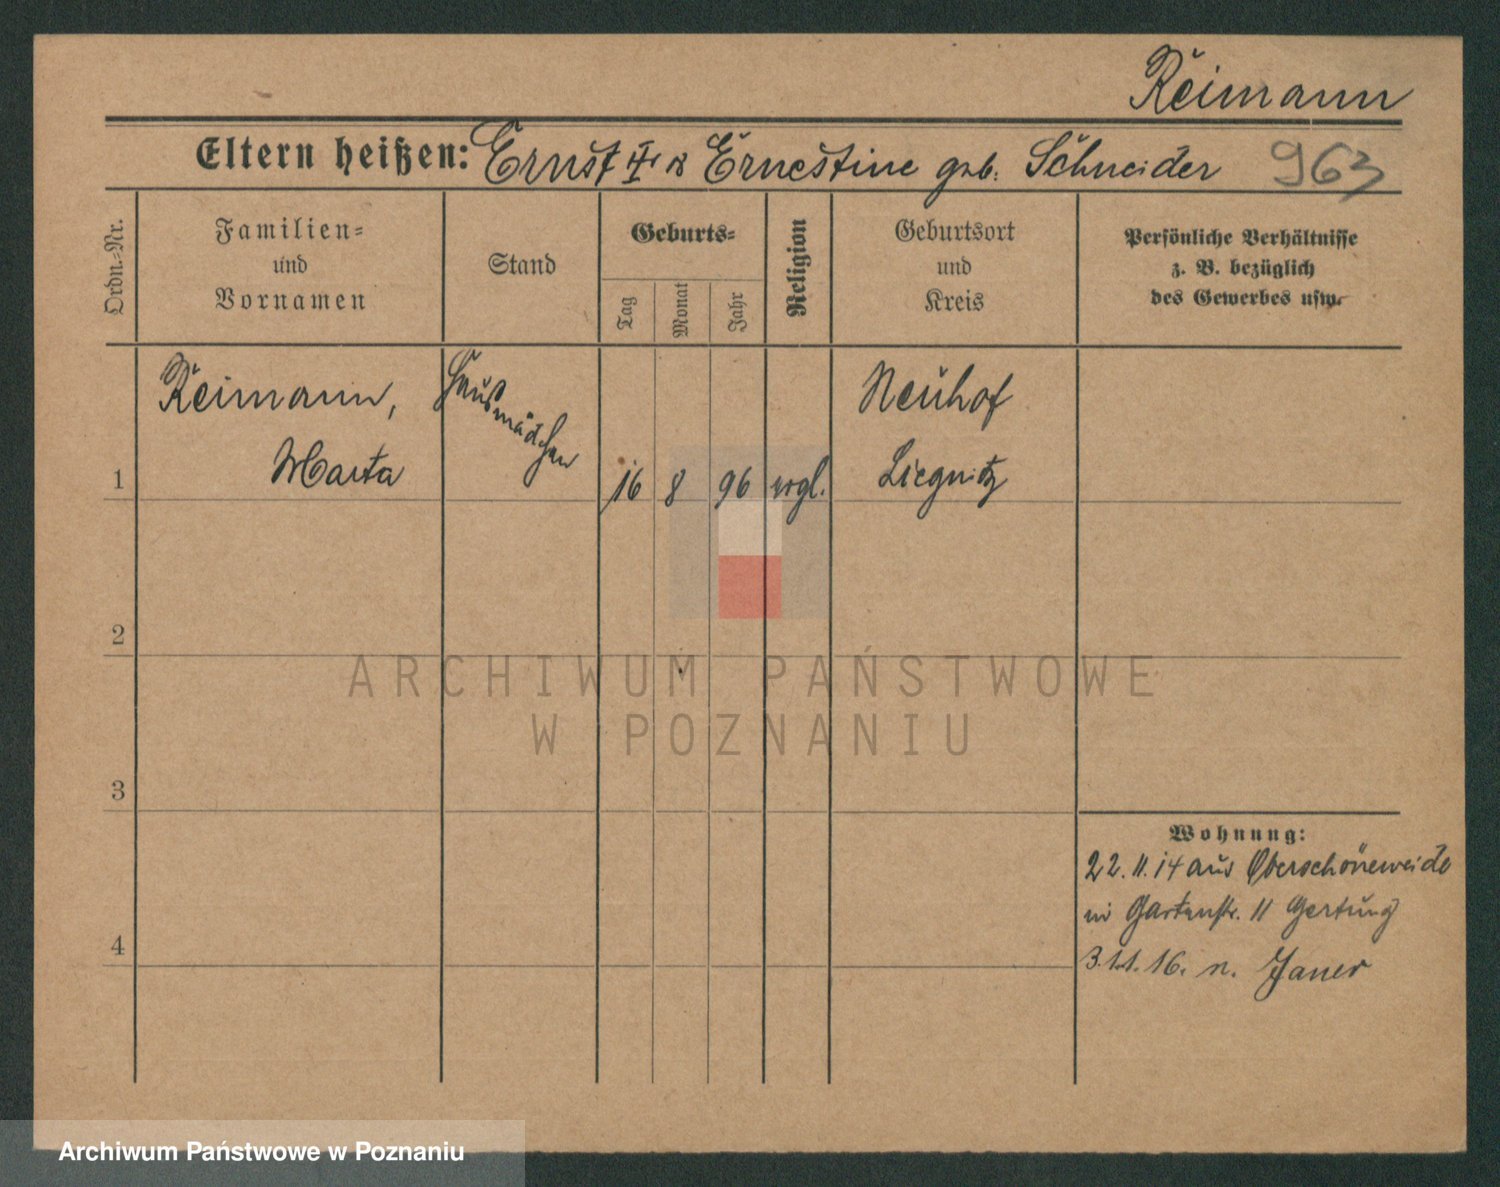 Reimann
Eltern heißen: Ernst II. & Ernestine geb. Schneider 963
Ordn.-Nr.
Familien-
und
Vornamen
Stand
Geburts-
Tag
Monat
Jahr
Religion
Geburtsort
und
Kreis
Persönliche Verhältnisse
z. B. bezüglich
des Gewerbes usw.
Reimann,
Marta
Hausmädchen
1
16 8 96 evgl.
Neuhof
Liegnitz
2
3
4
Wohnung:
22.11.14 aus Oberschöneweide
in Gartenstr. 11 Gertung
3.11.16. n. Jauer
ARCHIWUM PAŃSTWOWE
W POZNANIU
Archiwum Państwowe w Poznaniu